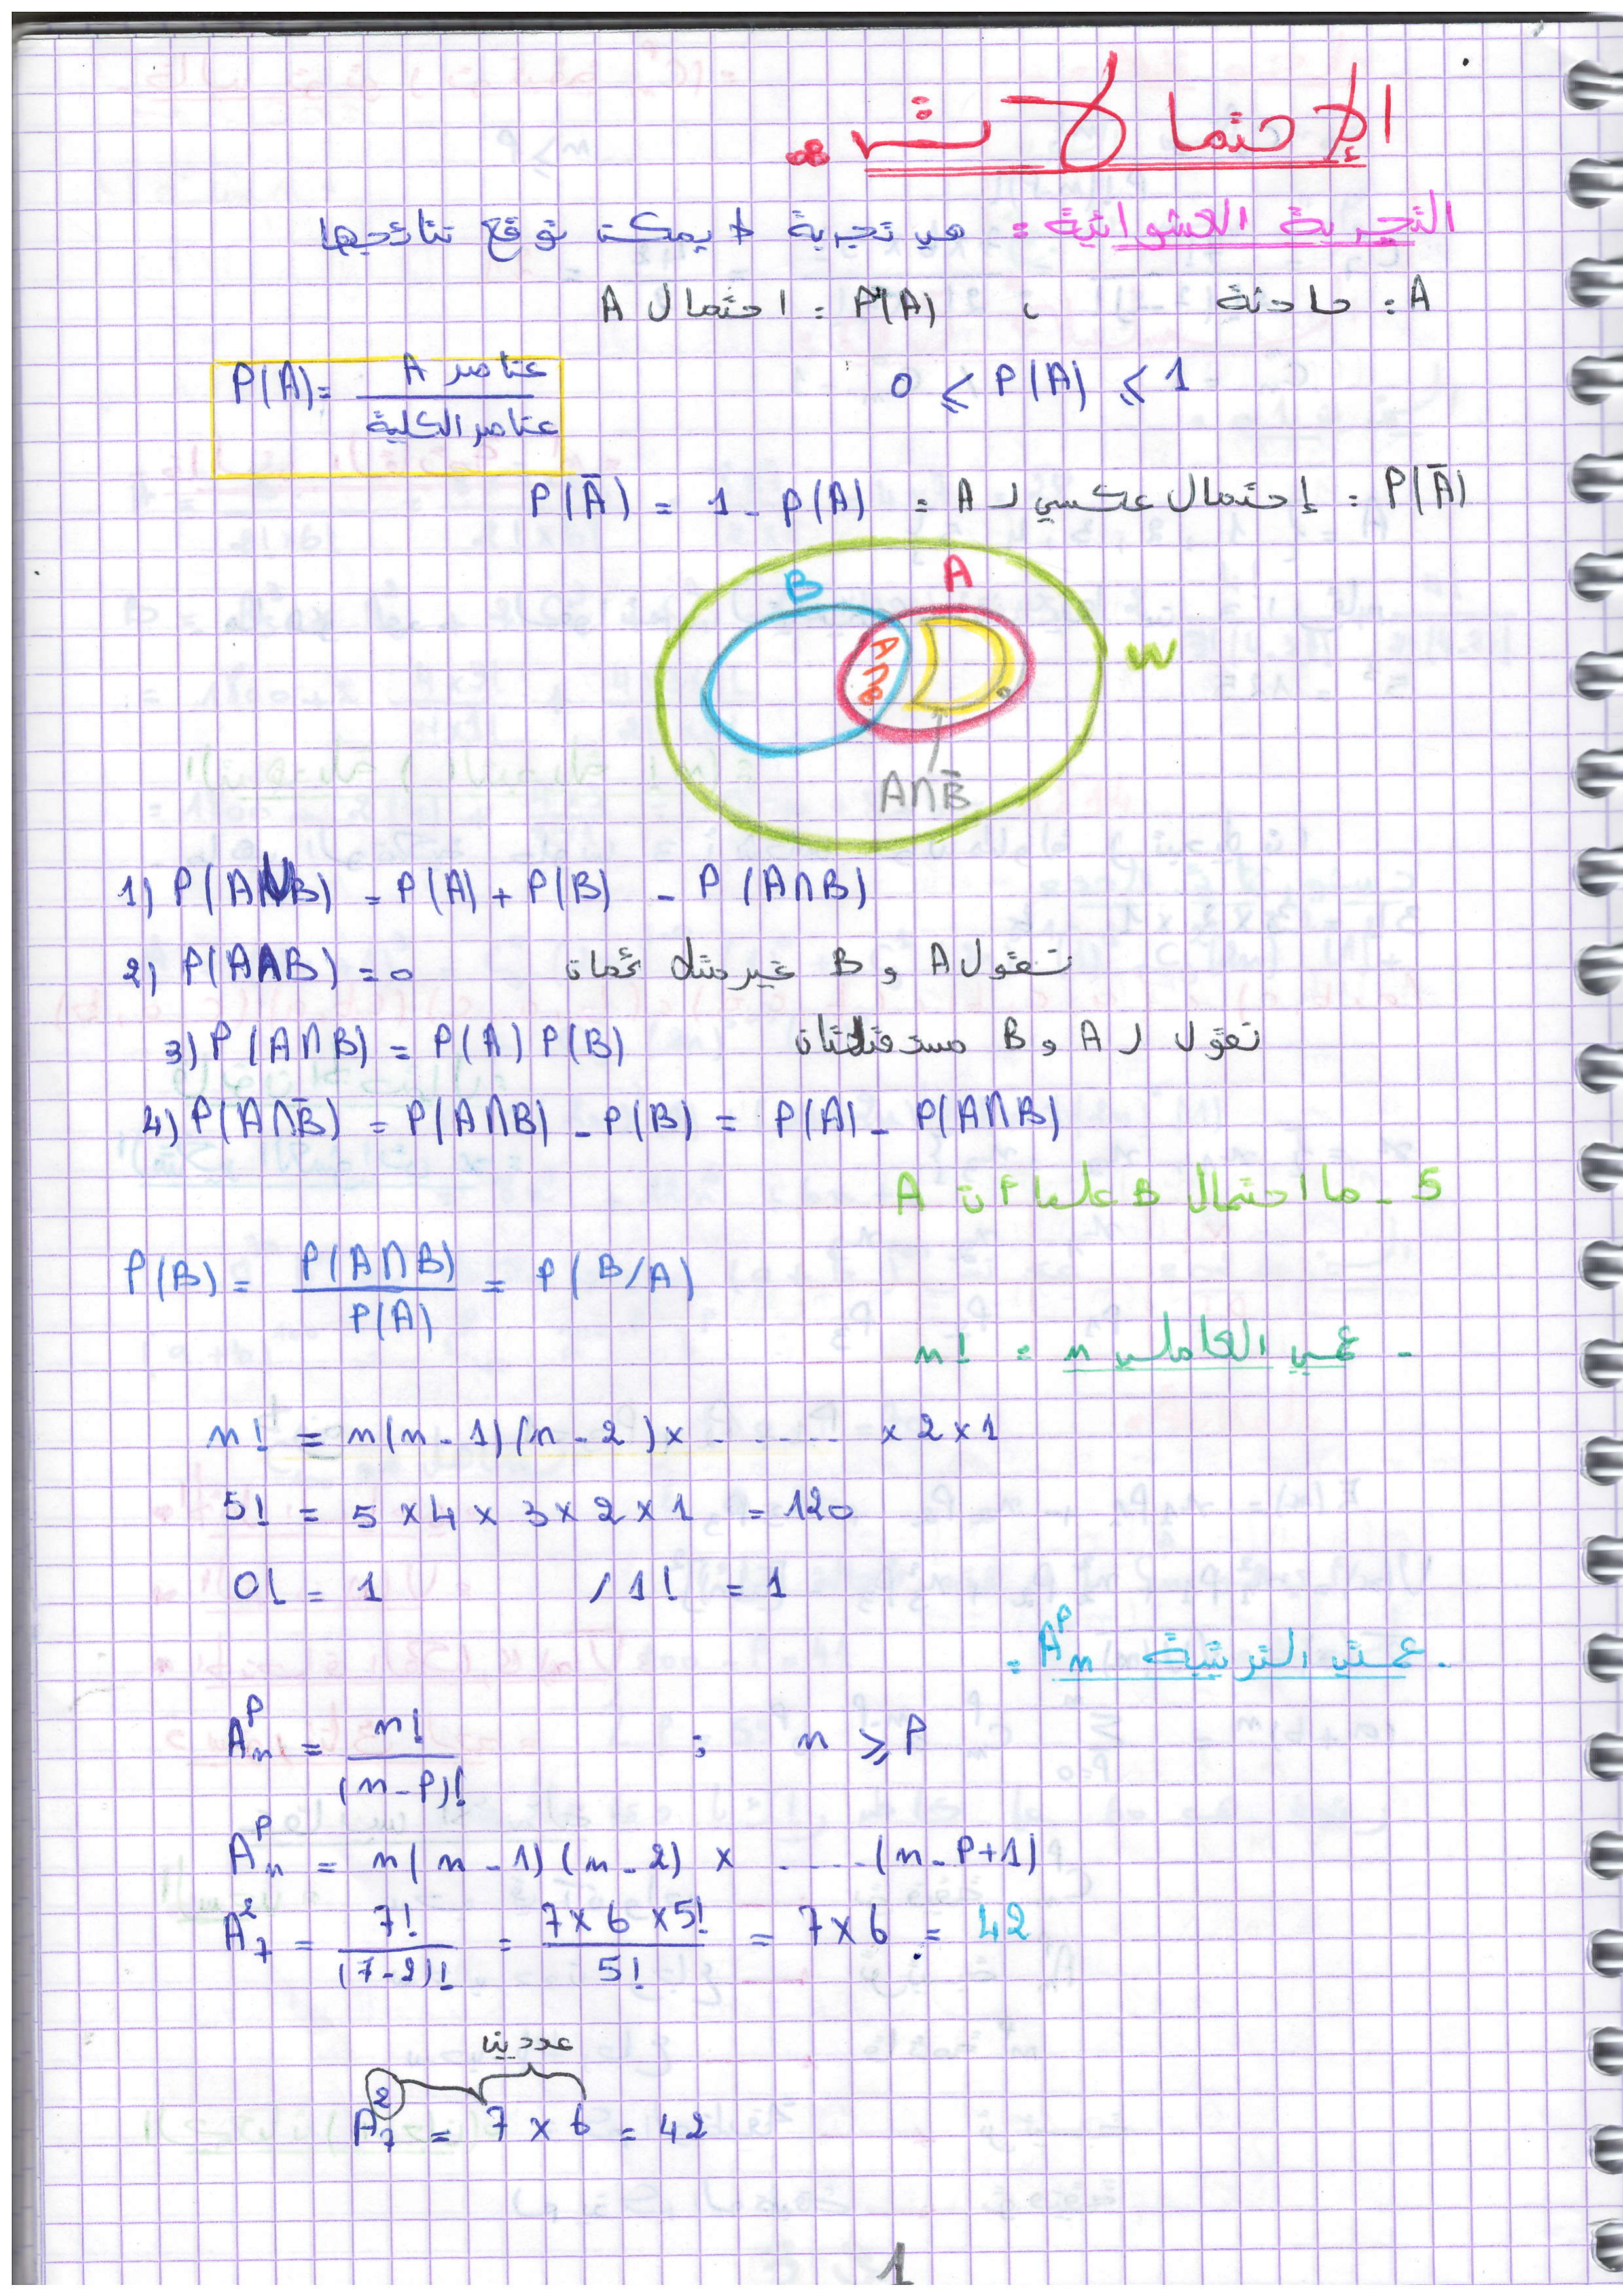 الإحتمالات :
التجربة العشوائية : هي تجربة لا يمكن توقع نتائجها
A : حادثة ، P(A) : احتمال A
0 ⩽ P(A) ⩽ 1
P(A) = عناصر A / عناصر الكلية
P(Ā) : إحتمال عكسي لـ A = P(Ā) = 1 - P(A)
B A
A∩B W
A∩B̄
1) P(A∪B) = P(A) + P(B) - P(A∩B)
2) P(A∩B) = 0 نقول A و B غير متلائمان
3) P(A∩B) = P(A) P(B) نقول لـ A و B مستقلتان
4) P(A∩B̄) = P(A∩B) - P(B) = P(A) - P(A∩B)
5 - ما احتمال B علما أن A
P(B) = P(A∩B) / P(A) = P(B/A)
- العاملي n : n!
n! = n(n-1)(n-2) x ...... x 2 x 1
5! = 5 x 4 x 3 x 2 x 1 = 120
0! = 1 / 1! = 1
الترتيبة Aₙᴾ :
Aₙᴾ = n! / (n-P)! ; n ⩾ P
Aₙᴾ = n(n-1)(n-2) x ..... (n-P+1)
A₇² = 7! / (7-2)! = 7x6x5! / 5! = 7x6 = 42
عددين
A₇² = 7 x 6 = 42
1